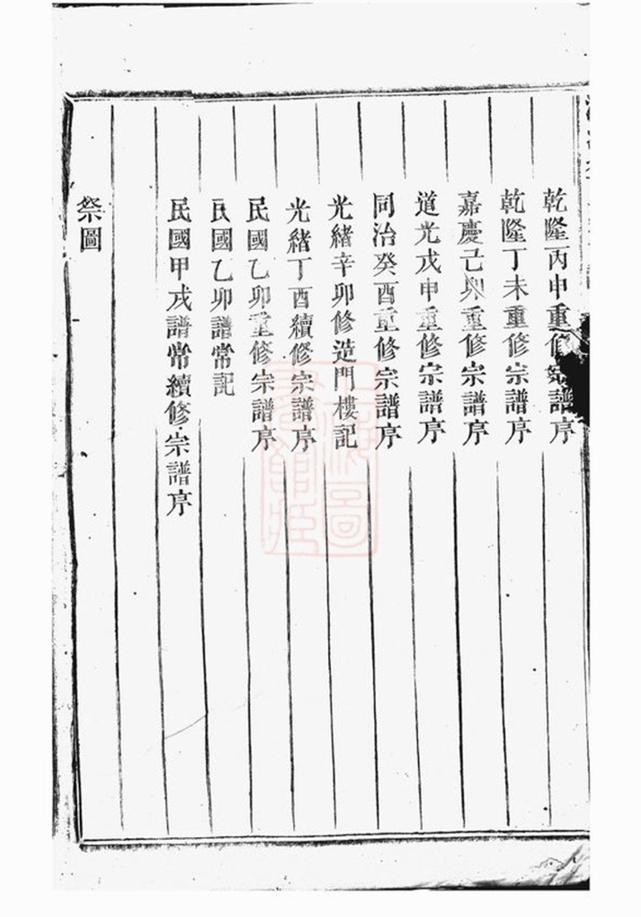 乾隆丙申重修宗譜序
乾隆丁未重修宗譜序
嘉慶己卯重修宗譜序
道光戊申重修宗譜序
同治癸酉重修宗譜序
光緒辛卯修造門樓記
光緒丁酉續修宗譜序
民國乙卯重修宗譜序
民國乙卯譜常記
民國甲戌譜常續修宗譜序
祭圖